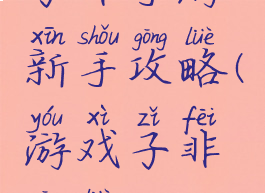 xīn shǒu gōng lüè
新手攻略(
yóu xì zǐ fēi
游戏子非